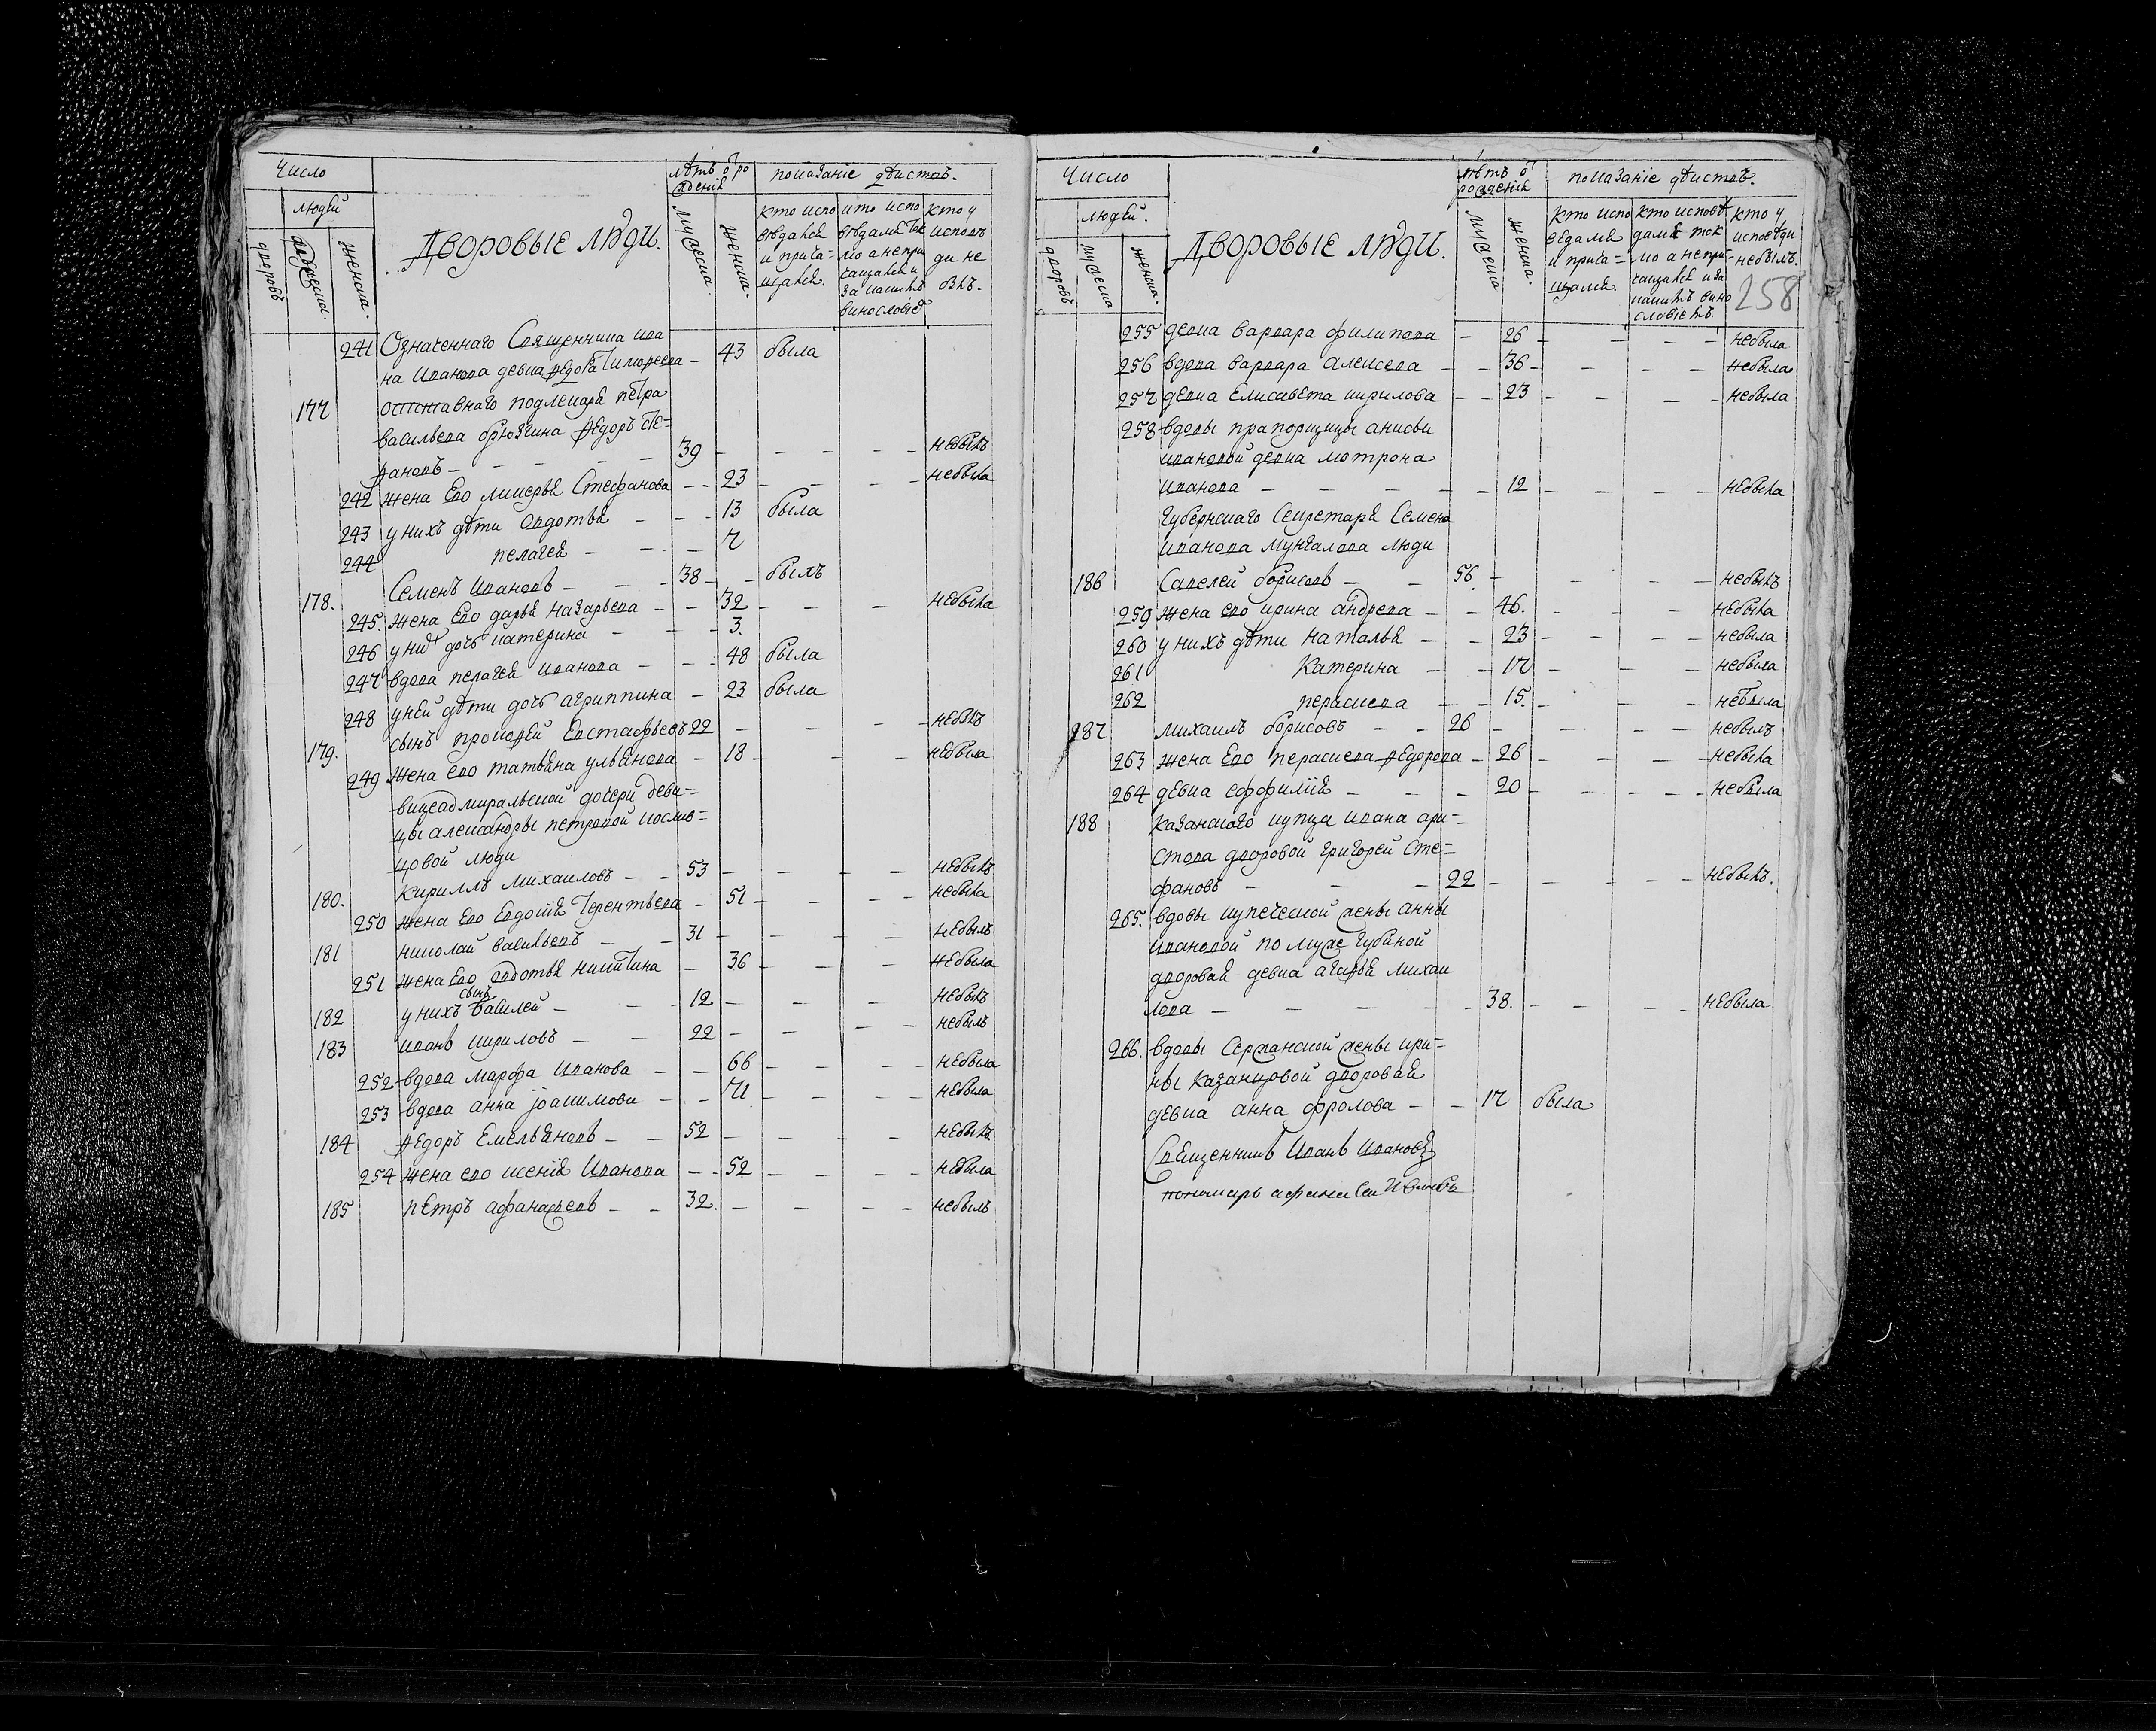 Число
людей
дворовъ
мужеска.
женска.
Дворовые люди.
лѣтъ ѿ ро
жденія
мужеска.
женска.
показаніе действъ.
кто испо
вѣдался
и прича=
щался.
кто испо
вѣдался ток
мо а непри
чащался и
за какимъ
винословіе
кто у
исповѣ
ди не
былъ.
241 Означеннаго Священника Ива
на Иванова девка федота Тимофеева – 43 была
177 отставнаго подлекаря петра
васильева брюзгина федоръ сте=
фановъ – – – – 39 – – – – – небылъ
242 жена Ево ликерья Стефанова – – 23 – – – – небыла
243 у нихъ дѣти Авдотья – – – 13 была
244 пелагея – – – 7
178. Семенъ Ивановъ – – – 38 – – былъ
245. жена Ево дарья Назарьева – – 32 – – – небыла
246 у них дочь катерина – – – 3.
247 вдова пелагея иванова – – – 48 была
248 у ней дѣти дочь агриппина – 23 была
179. сынъ прокофей Евстафьевъ 22 – – – – небылъ
249 жена ево татьяна ульянова – 18 – – – небыла
вицеадмиральской дочери деви=
цы александры петровой косли=
цовой люди
180. Кириллъ Михаиловъ – – 53 – – – – небылъ
250 жена Ево Евдокія Терентьева – 51 – – – – небыла
181 николай васильевъ – – 31 – – – – небылъ
251 жена Ево авдотья никитина – 36 – – – небыла
182 у нихъ сынъ василей – – – 12 – – – – небылъ
183 иванъ кириловъ – – 22 – – – – небылъ
252 вдова марфа иванова – – 66 – – – – небыла
253 вдова анна іоакимова – – 71 – – – – небыла
184 федоръ Емельяновъ – – 52 – – – – небылъ
254 жена ево ксенія Иванова – – 52 – – – – небыла
185 петръ афанасьевъ – – 32. – – – – небылъ
Число
людей.
дворовъ
мужеска
женска.
Дворовые люди.
лѣтъ ѿ
рожденія
мужеска
женска.
показаніе действъ.
кто испо
ведался
и прича=
щался.
кто исповѣ
дался ток
мо а непри=
чащался и за
какимъ вино
словіемъ.
кто у
исповѣди
небылъ.
258
255 девка варвара филипова – 26 – – – – небыла
256 вдова варвара алексеева – – 36 – – – – небыла
257 девка Елисавета кирилова – – 23 – – – – небыла
258 вдовы прапорщицы анисьи
ивановой девка мотрона
иванова – – – – – – 12 – – – – небыла
Губернскаго Секретаря Семена
иванова мунгалова люди
186 Савелей борисовъ – – 56. – – – – небылъ
259 жена ево ирина андреева – – 46. – – – небыла
260 у нихъ дѣти наталья – – 23 – – – – небыла
261 Катерина – – 17 – – – небыла
262 перасковa – – 15. – – – небыла
187 михаилъ борисовъ – – 26 – – – – небылъ
263 жена Ево перасковa федорова – 26 – – – – небыла
264 девка еффимія – – – 20 – – – – небыла
188 казанскаго купца ивана ари=
стова дворовой григорей Сте=
фановъ – – – 22 – – – – небылъ.
265. вдовы купеческой жены анны
ивановой по муже губиной
дворовая девка агафья михаи
лова – – – – – – 38. – – – – небыла
266. вдовы Сержанской жены ири=
ны казанцовой дворовая
девка анна фролова – – 17 была
Священникъ Иванъ Ивановъ
пономарь афанасеи Ивановъ